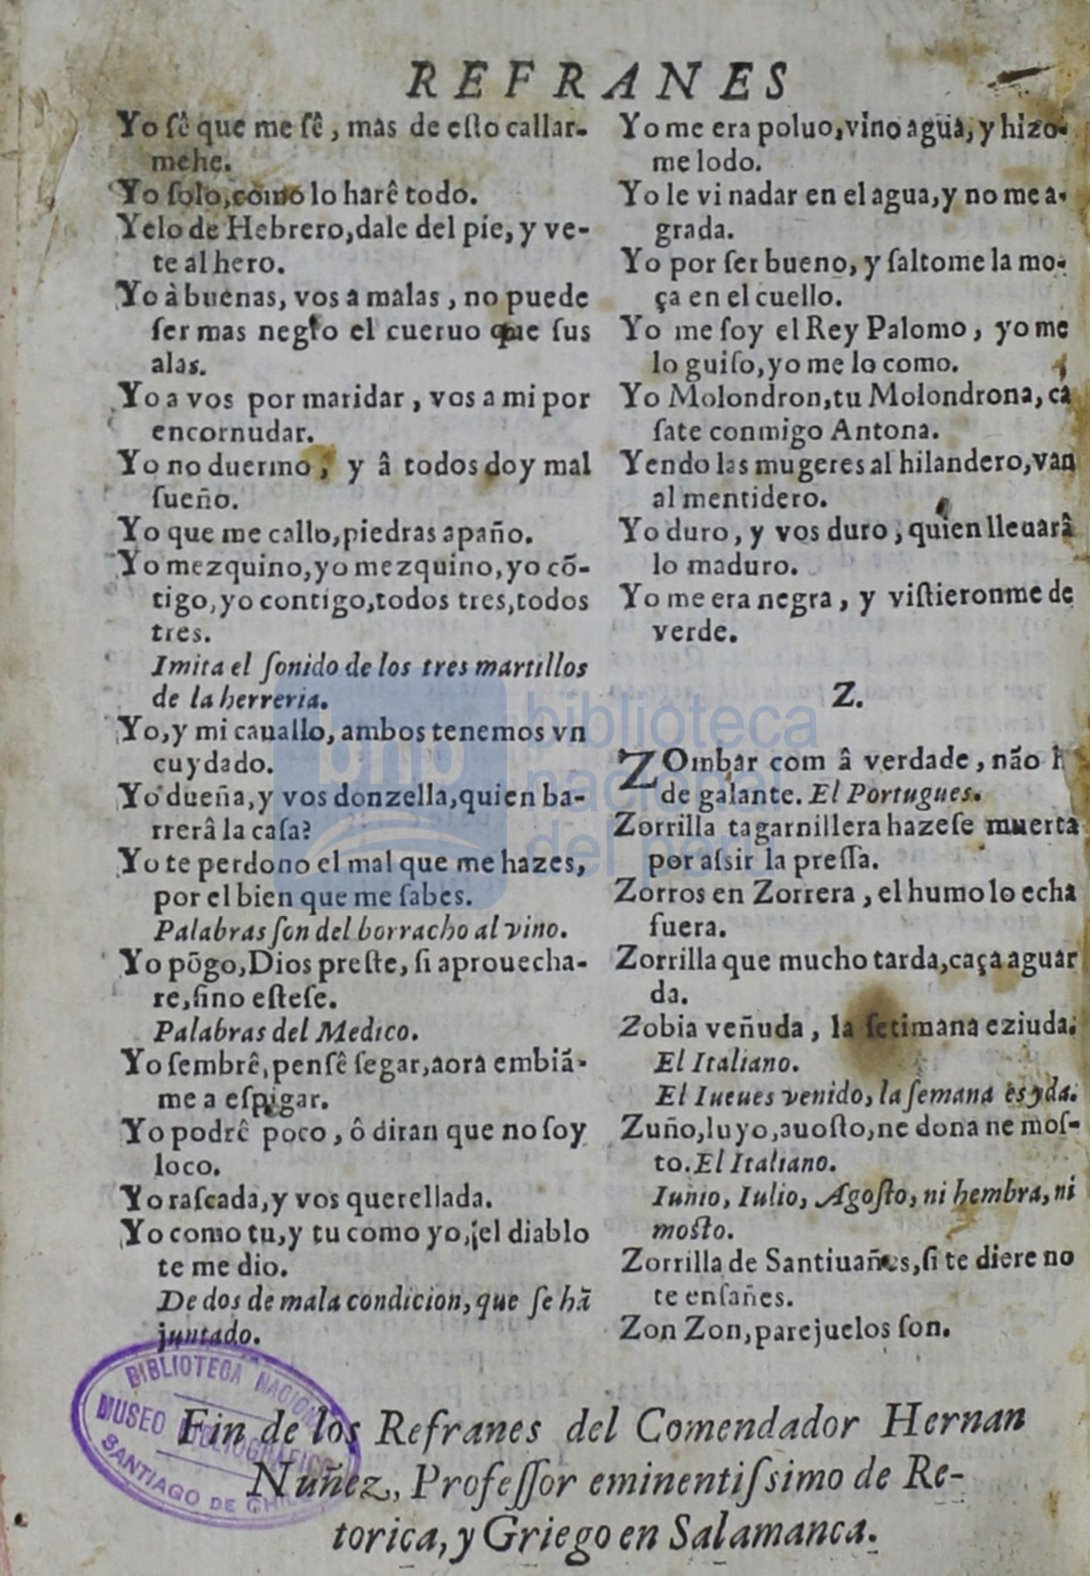 REFRANES
Yo sê que me sê, mas de esto callar-
mehe.
Yo solo, como lo harê todo.
Yelo de Hebrero, dale del pie, y ve-
te al hero.
Yo à buenas, vos a malas, no puede
ser mas negro el cueruo que sus
alas.
Yo a vos por maridar, vos a mi por
encornudar.
Yo no duermo, y â todos doy mal
sueño.
Yo que me callo, piedras apaño.
Yo mezquino, yo mezquino, yo cõ-
tigo, yo contigo, todos tres, todos
tres.
Imita el sonido de los tres martillos
de la herreria.
Yo, y mi cauallo, ambos tenemos vn
cuydado.
Yo dueña, y vos donzella, quien ba-
rrerâ la casa?
Yo te perdono el mal que me hazes,
por el bien que me sabes.
Palabras son del borracho al vino.
Yo põgo, Dios preste, si aprouecha-
re, sino estese.
Palabras del Medico.
Yo sembrê, pensê segar, aora embiã-
me a espigar.
Yo podrê poco, ô diran que no soy
loco.
Yo rascada, y vos querellada.
Yo como tu, y tu como yo, el diablo
te me dio.
De dos de mala condicion, que se hã
juntado.
Yo me era poluo, vino agua, y hizo-
me lodo.
Yo le vi nadar en el agua, y no me a-
grada.
Yo por ser bueno, y saltome la mo-
ça en el cuello.
Yo me soy el Rey Palomo, yo me
lo guiso, yo me lo como.
Yo Molondron, tu Molondrona, ca
sate conmigo Antona.
Yendo las mugeres al hilandero, van
al mentidero.
Yo duro, y vos duro, quien lleuarâ
lo maduro.
Yo me era negra, y vistieronme de
verde.
Z.
ZOmbar com â verdade, não h
de galante. El Portugues.
Zorrilla tagarnillera hazese muerta
por assir la pressa.
Zorros en Zorrera, el humo lo echa
fuera.
Zorrilla que mucho tarda, caça aguar
da.
Zobia veñuda, la setimana eziuda.
El Italiano.
El Iueues venido, la semana es yda.
Zuño, luyo, auosto, ne dona ne mos-
to. El Italiano.
Iunio, Iulio, Agosto, ni hembra, ni
mosto.
Zorrilla de Santiuañes, si te diere no
te ensañes.
Zon Zon, parejuelos son.
Fin de los Refranes del Comendador Hernan
Nuñez, Professor eminentissimo de Re-
torica, y Griego en Salamanca.
biblioteca
nacional
del perú
bnp
BIBLIOTECA NACIONAL
MUSEO BIBLIOGRAFICO
SANTIAGO DE CHILE